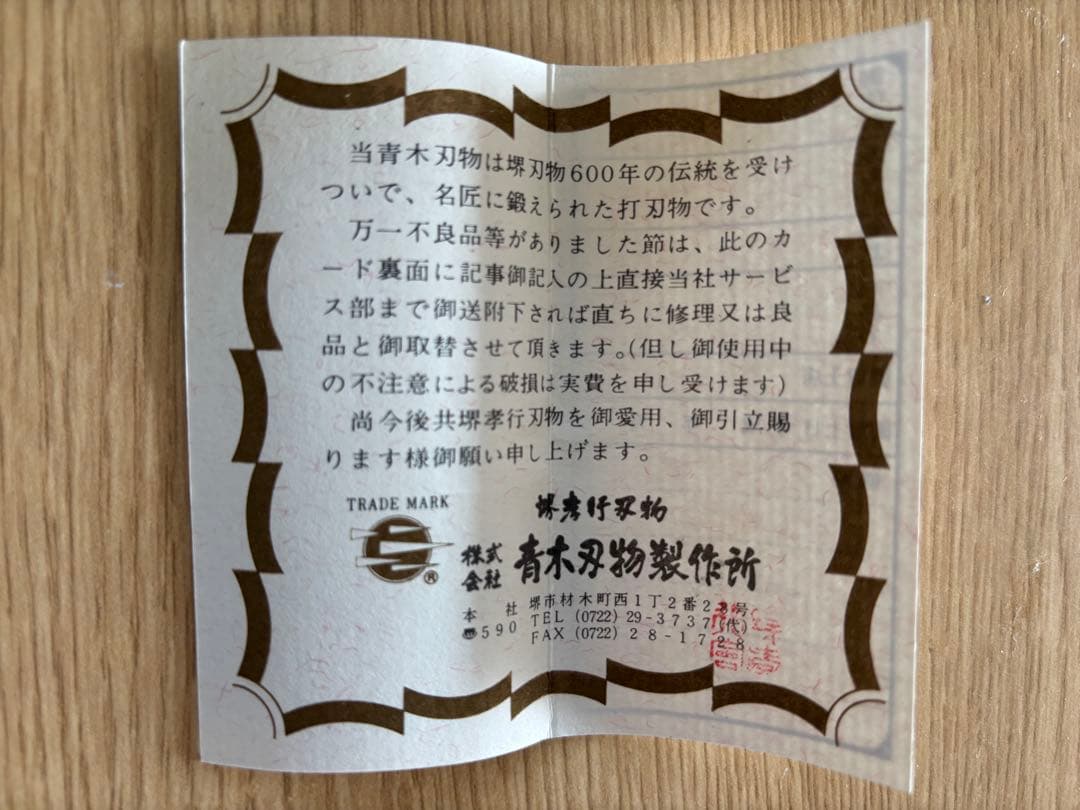 当青木刃物は堺刃物600年の伝統を受け
ついで、名匠に鍛えられた打刃物です。
万一不良品等がありました節は、此のカ
ード裏面に記事御記入の上直接当社サービ
ス部まで御送附下されば直ちに修理又は良
品と御取替させて頂きます。(但し御使用中
の不注意による破損は実費を申し受けます)
尚今後共堺孝行刃物を御愛用、御引立賜
ります様御願い申し上げます。
TRADE MARK
®
堺孝行刃物
株式会社 青木刃物製作所
本社 堺市材木町西1丁2番23号
〠590 TEL (0722) 29-3737(代)
FAX (0722) 28-1728